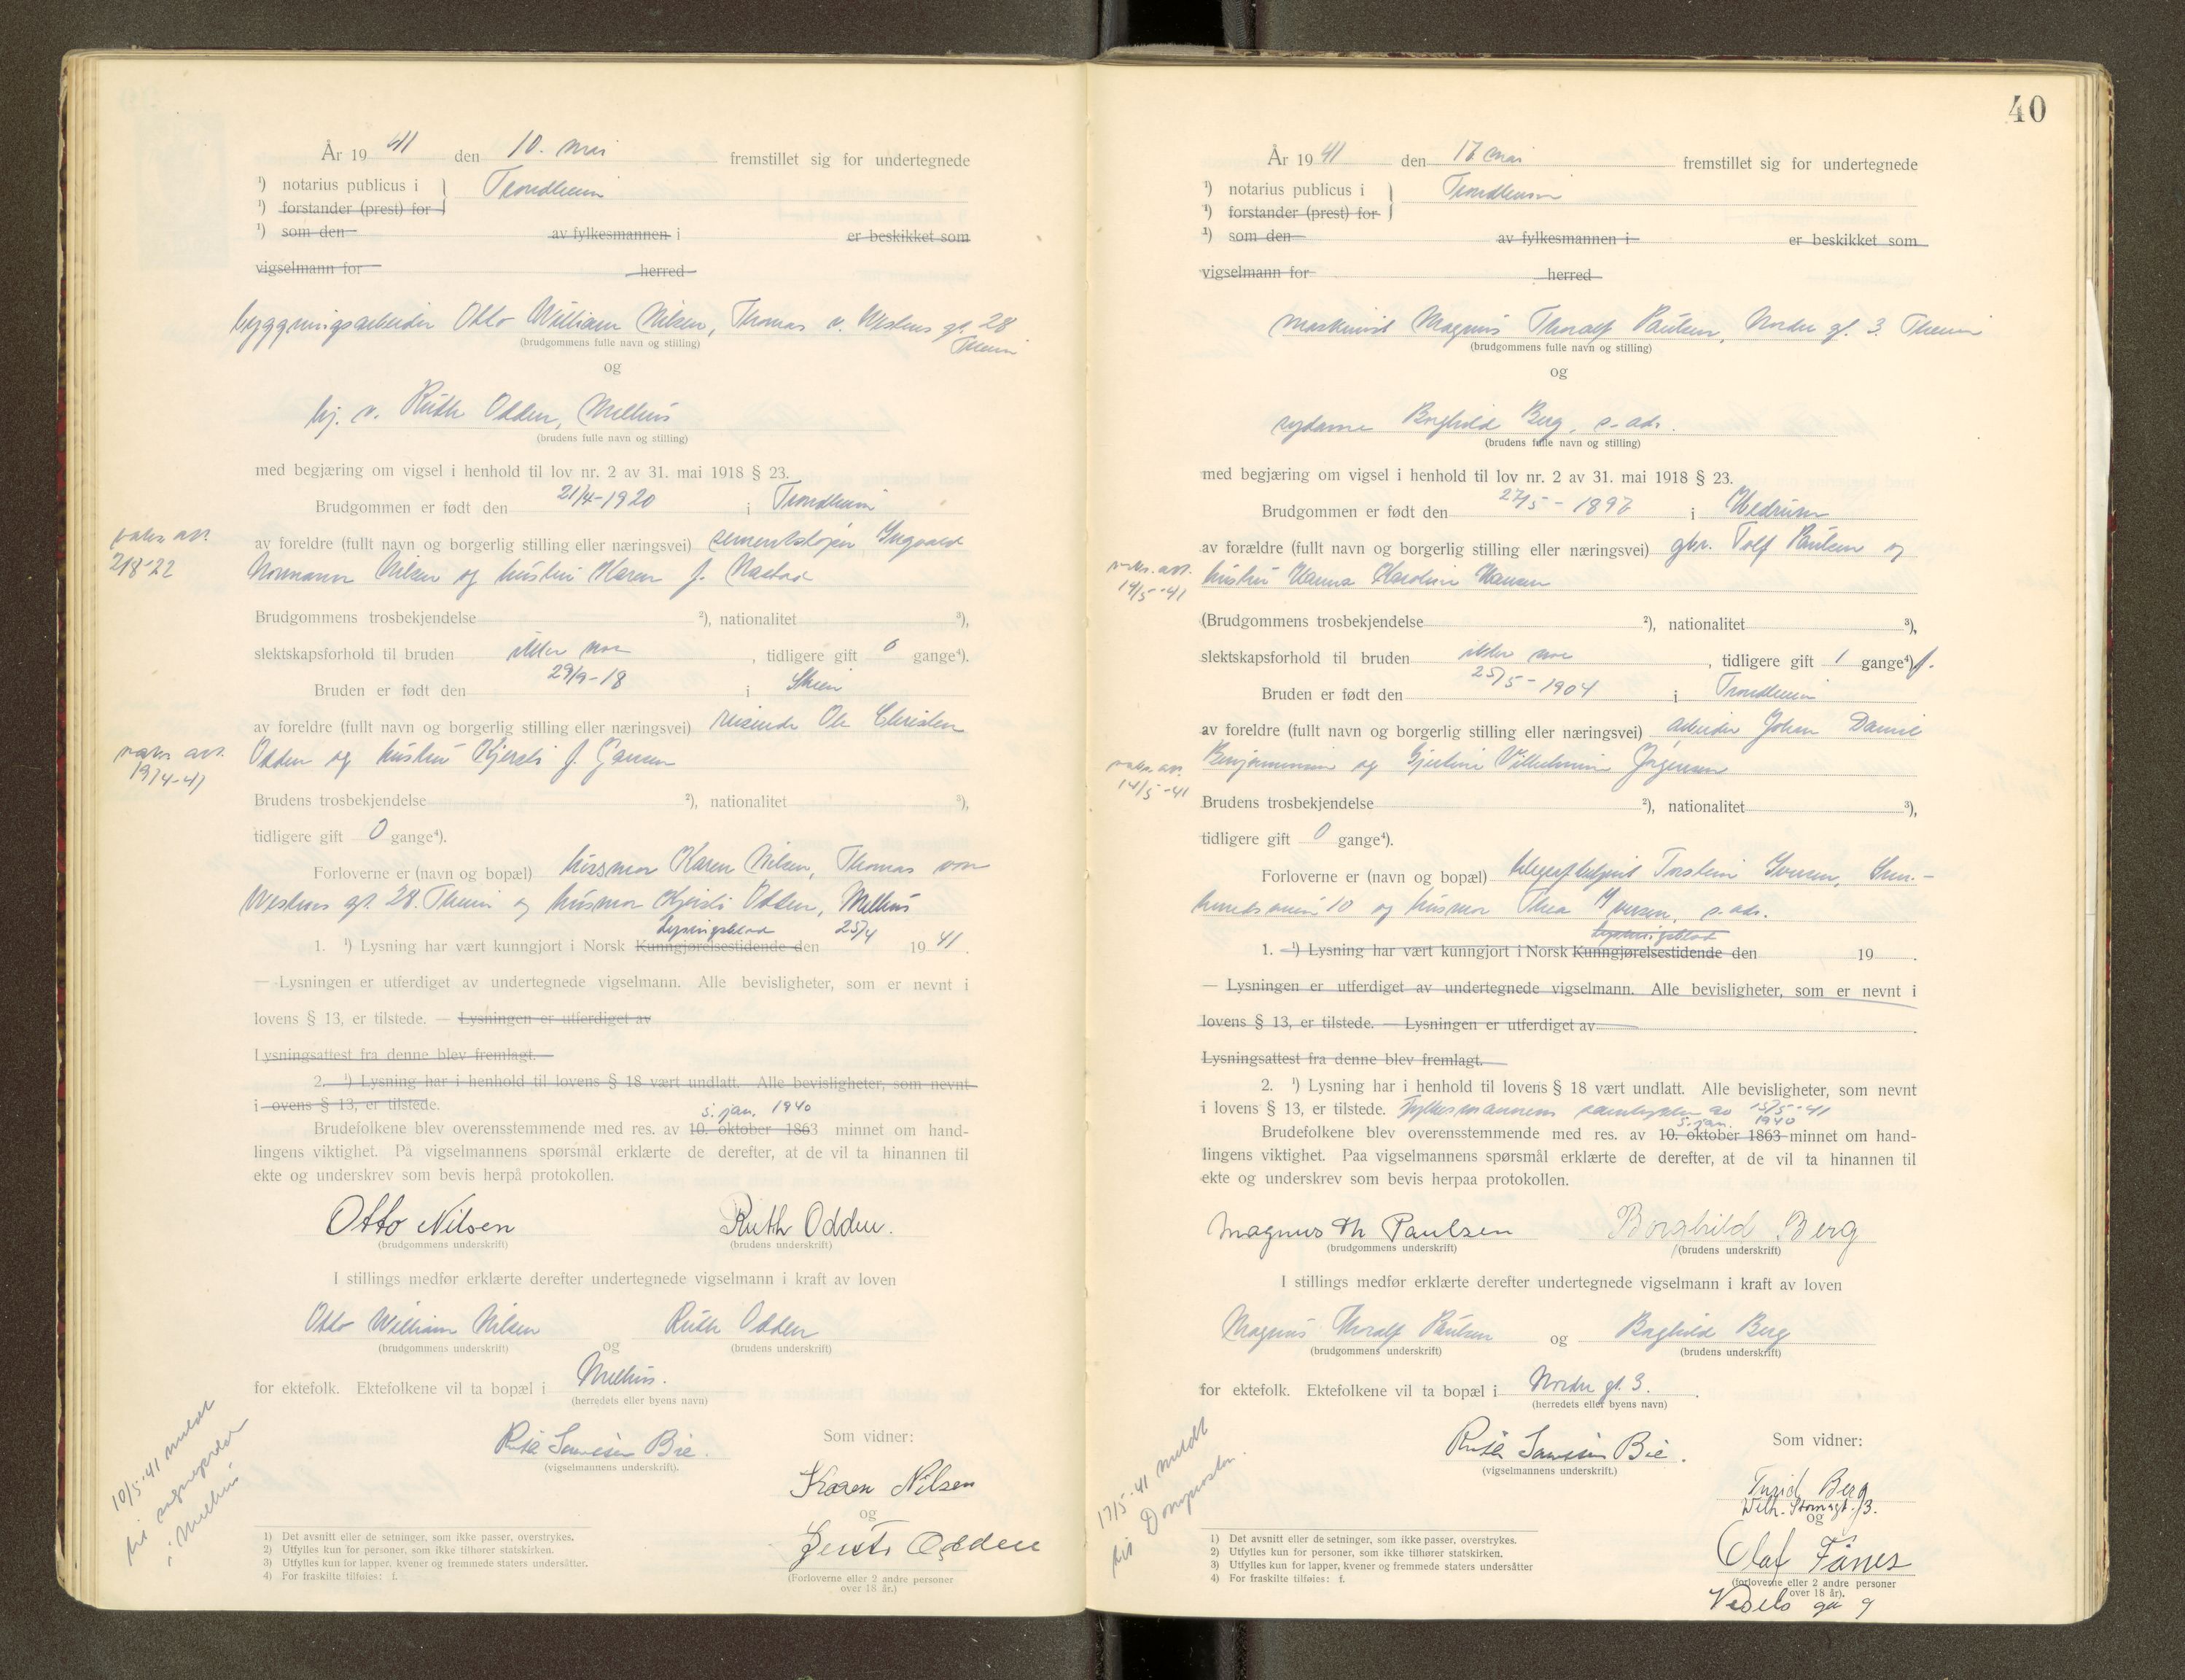 År 19 41 den 10. mai fremstillet sig for undertegnede
¹) notarius publicus i Trondheim
¹) forstander (prest) for
¹) som den av fylkesmannen i er beskikket som
vigselmann for herred
byggningsarbeider Otto William Nilsen, Thomas v. Westens gt. 28
Theim
(brudgommens fulle navn og stilling)
og
hj. v. Ruth Odden, Melhus
(brudens fulle navn og stilling)
med begjæring om vigsel i henhold til lov nr. 2 av 31. mai 1918 § 23.
Brudgommen er født den 21/4-1920 i Trondheim
vaks. att.
2/8-22
av foreldre (fullt navn og borgerlig stilling eller næringsvei) sementstøper Ingvald
Normann Nilsen og hustru Karen f.
Brudgommens trosbekjendelse ²), nationalitet ³),
slektskapsforhold til bruden ikke noe, tidligere gift 0 gange⁴).
Bruden er født den 29/9-18 i Skien
av foreldre (fullt navn og borgerlig stilling eller næringsvei) reisende Ole Christen
vaks. att.
19/4-41
Odden og hustru Kjersti f. Jansen
Brudens trosbekjendelse ²), nationalitet ³),
tidligere gift 0 gange⁴).
Forloverne er (navn og bopæl) husmor Karen Nilsen, Thomas von
Westens gt. 28. Theim og husmor Kjersti Odden, Melhus
Lysningsblad 25/4
1. ¹) Lysning har vært kunngjort i Norsk Kunngjørelsestidende den 19 41.
— Lysningen er utferdiget av undertegnede vigselmann. Alle bevisligheter, som er nevnt i
lovens § 13, er tilstede. — Lysningen er utferdiget av
Lysningsattest fra denne blev fremlagt.
2. ¹) Lysning har i henhold til lovens § 18 vært undlatt. Alle bevisligheter, som nevnt
i lovens § 13, er tilstede.
5. jan. 1940
Brudefolkene blev overensstemmende med res. av 10. oktober 1863 minnet om hand-
lingens viktighet. På vigselmannens spørsmål erklærte de derefter, at de vil ta hinannen til
ekte og underskrev som bevis herpå protokollen.
Otto Nilsen Ruth Odden.
(brudgommens underskrift) (brudens underskrift)
I stillings medfør erklærte derefter undertegnede vigselmann i kraft av loven
Otto William Nilsen og Ruth Odden
(brudgommens underskrift) (brudens underskrift)
for ektefolk. Ektefolkene vil ta bopæl i Melhus.
(herredets eller byens navn)
10/5-41 meldt
til sogneprest
i Melhus
Som vidner:
(vigselmannens underskrift).
Karen Nilsen
og
Odden
(Forloverne eller 2 andre personer
over 18 år.)
1) Det avsnitt eller de setninger, som ikke passer, overstrykes.
2) Utfylles kun for personer, som ikke tilhører statskirken.
3) Utfylles kun for lapper, kvener og fremmede staters undersåtter.
4) For fraskilte tilføies: f.
40
År 19 41 den 17 mai fremstillet sig for undertegnede
¹) notarius publicus i Trondheim
¹) forstander (prest) for
¹) som den av fylkesmannen i er beskikket som
vigselmann for herred
maskinist Magnus Thoralf Paulsen, Nordre gt. 3. Theim
(brudgommens fulle navn og stilling)
og
sydame Borghild Berg, s. adr.
(brudens fulle navn og stilling)
med begjæring om vigsel i henhold til lov nr. 2 av 31. mai 1918 § 23.
Brudgommen er født den 27/5 - 1896 i Hedrum
av forældre (fullt navn og borgerlig stilling eller næringsvei) gbr. Tolf Paulsen og
vaks. att.
14/5-41
hustru Hanna Karoline Hansen
(Brudgommens trosbekjendelse ²), nationalitet ³),
slektskapsforhold til bruden ikke noe, tidligere gift 1 gange⁴) f.
Bruden er født den 25/5 - 1904 i Trondheim
av foreldre (fullt navn og borgerlig stilling eller næringsvei) arbeider Johan Daniel
vaks. att.
14/5-41
Benjaminsen og Gjertine Vilhelmine Jørgensen
Brudens trosbekjendelse ²), nationalitet ³),
tidligere gift 0 gange⁴).
Forloverne er (navn og bopæl) Torstein Iversen,
10 og husmor Thea Iversen, s. adr.
Lysningsblad
1. ¹) Lysning har vært kunngjort i Norsk Kunngjørelsestidende den 19 .
— Lysningen er utferdiget av undertegnede vigselmann. Alle bevisligheter, som er nevnt i
lovens § 13, er tilstede. — Lysningen er utferdiget av .
Lysningsattest fra denne blev fremlagt.
2. ¹) Lysning har i henhold til lovens § 18 vært undlatt. Alle bevisligheter, som nevnt
i lovens § 13, er tilstede. Fylkesmannens samtykke av 15/5-41
5. jan. 1940
Brudefolkene blev overensstemmende med res. av 10. oktober 1863 minnet om hand-
lingens viktighet. Paa vigselmannens spørsmål erklærte de derefter, at de vil ta hinannen til
ekte og underskrev som bevis herpaa protokollen.
Magnus Th Paulsen Borghild Berg
(brudgommens underskrift) (brudens underskrift)
I stillings medfør erklærte derefter undertegnede vigselmann i kraft av loven
Magnus Thoralf Paulsen og Borghild Berg
(brudgommens underskrift) (brudens underskrift)
for ektefolk. Ektefolkene vil ta bopæl i Nordre gt. 3.
(herredets eller byens navn)
17/5-41 meldt
til Domprosten.
Som vidner:
(vigselmannens underskrift.)
Turid Berg
Wilh. Stormsgt. 13.
og
Olaf Fånes
(forloverne eller 2 andre personer
over 18 år).
9
1) Det avsnitt eller de setninger, som ikke passer, overstrykes.
2) Utfylles kun for personer, som ikke tilhører statskirken.
3) Utfylles kun for lapper, kvener og fremmede staters undersåtter
4) For fraskilte tilføies: f.